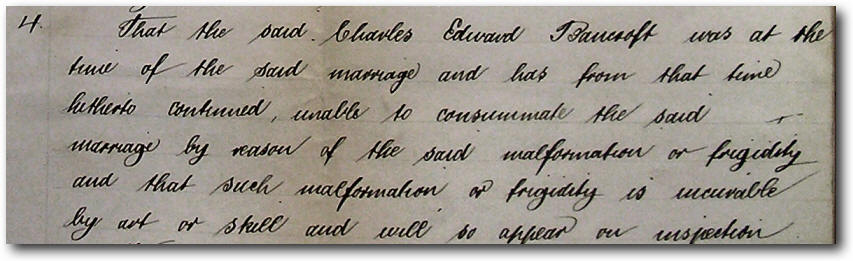 4. That the said Charles Edward Bancroft was at the
time of the said marriage and has from that time
hitherto continued, unable to consummate the said
marriage by reason of the said malformation or frigidity
and that such malformation or frigidity is incurable
by art or skill and will so appear on inspection